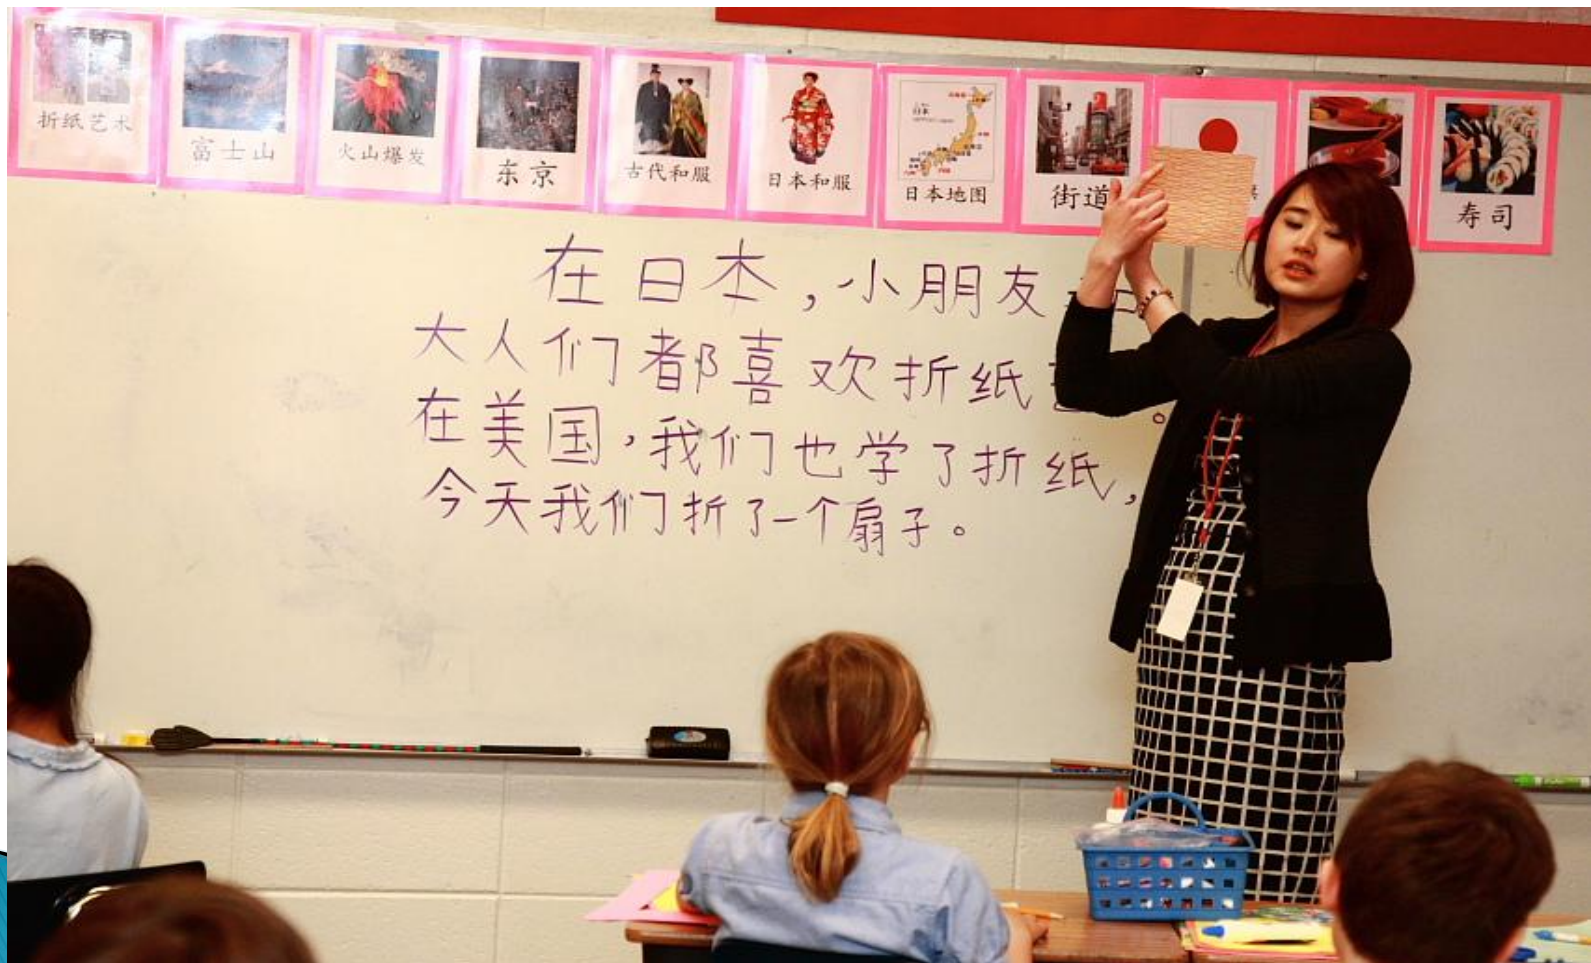 折纸艺术
富士山
火山爆发
东京
古代和服
日本和服
日本地图
街道
寿司
在日本，小朋友
大人们都喜欢折纸 。
在美国，我们也学了折纸，
今天我们折了一个扇子。